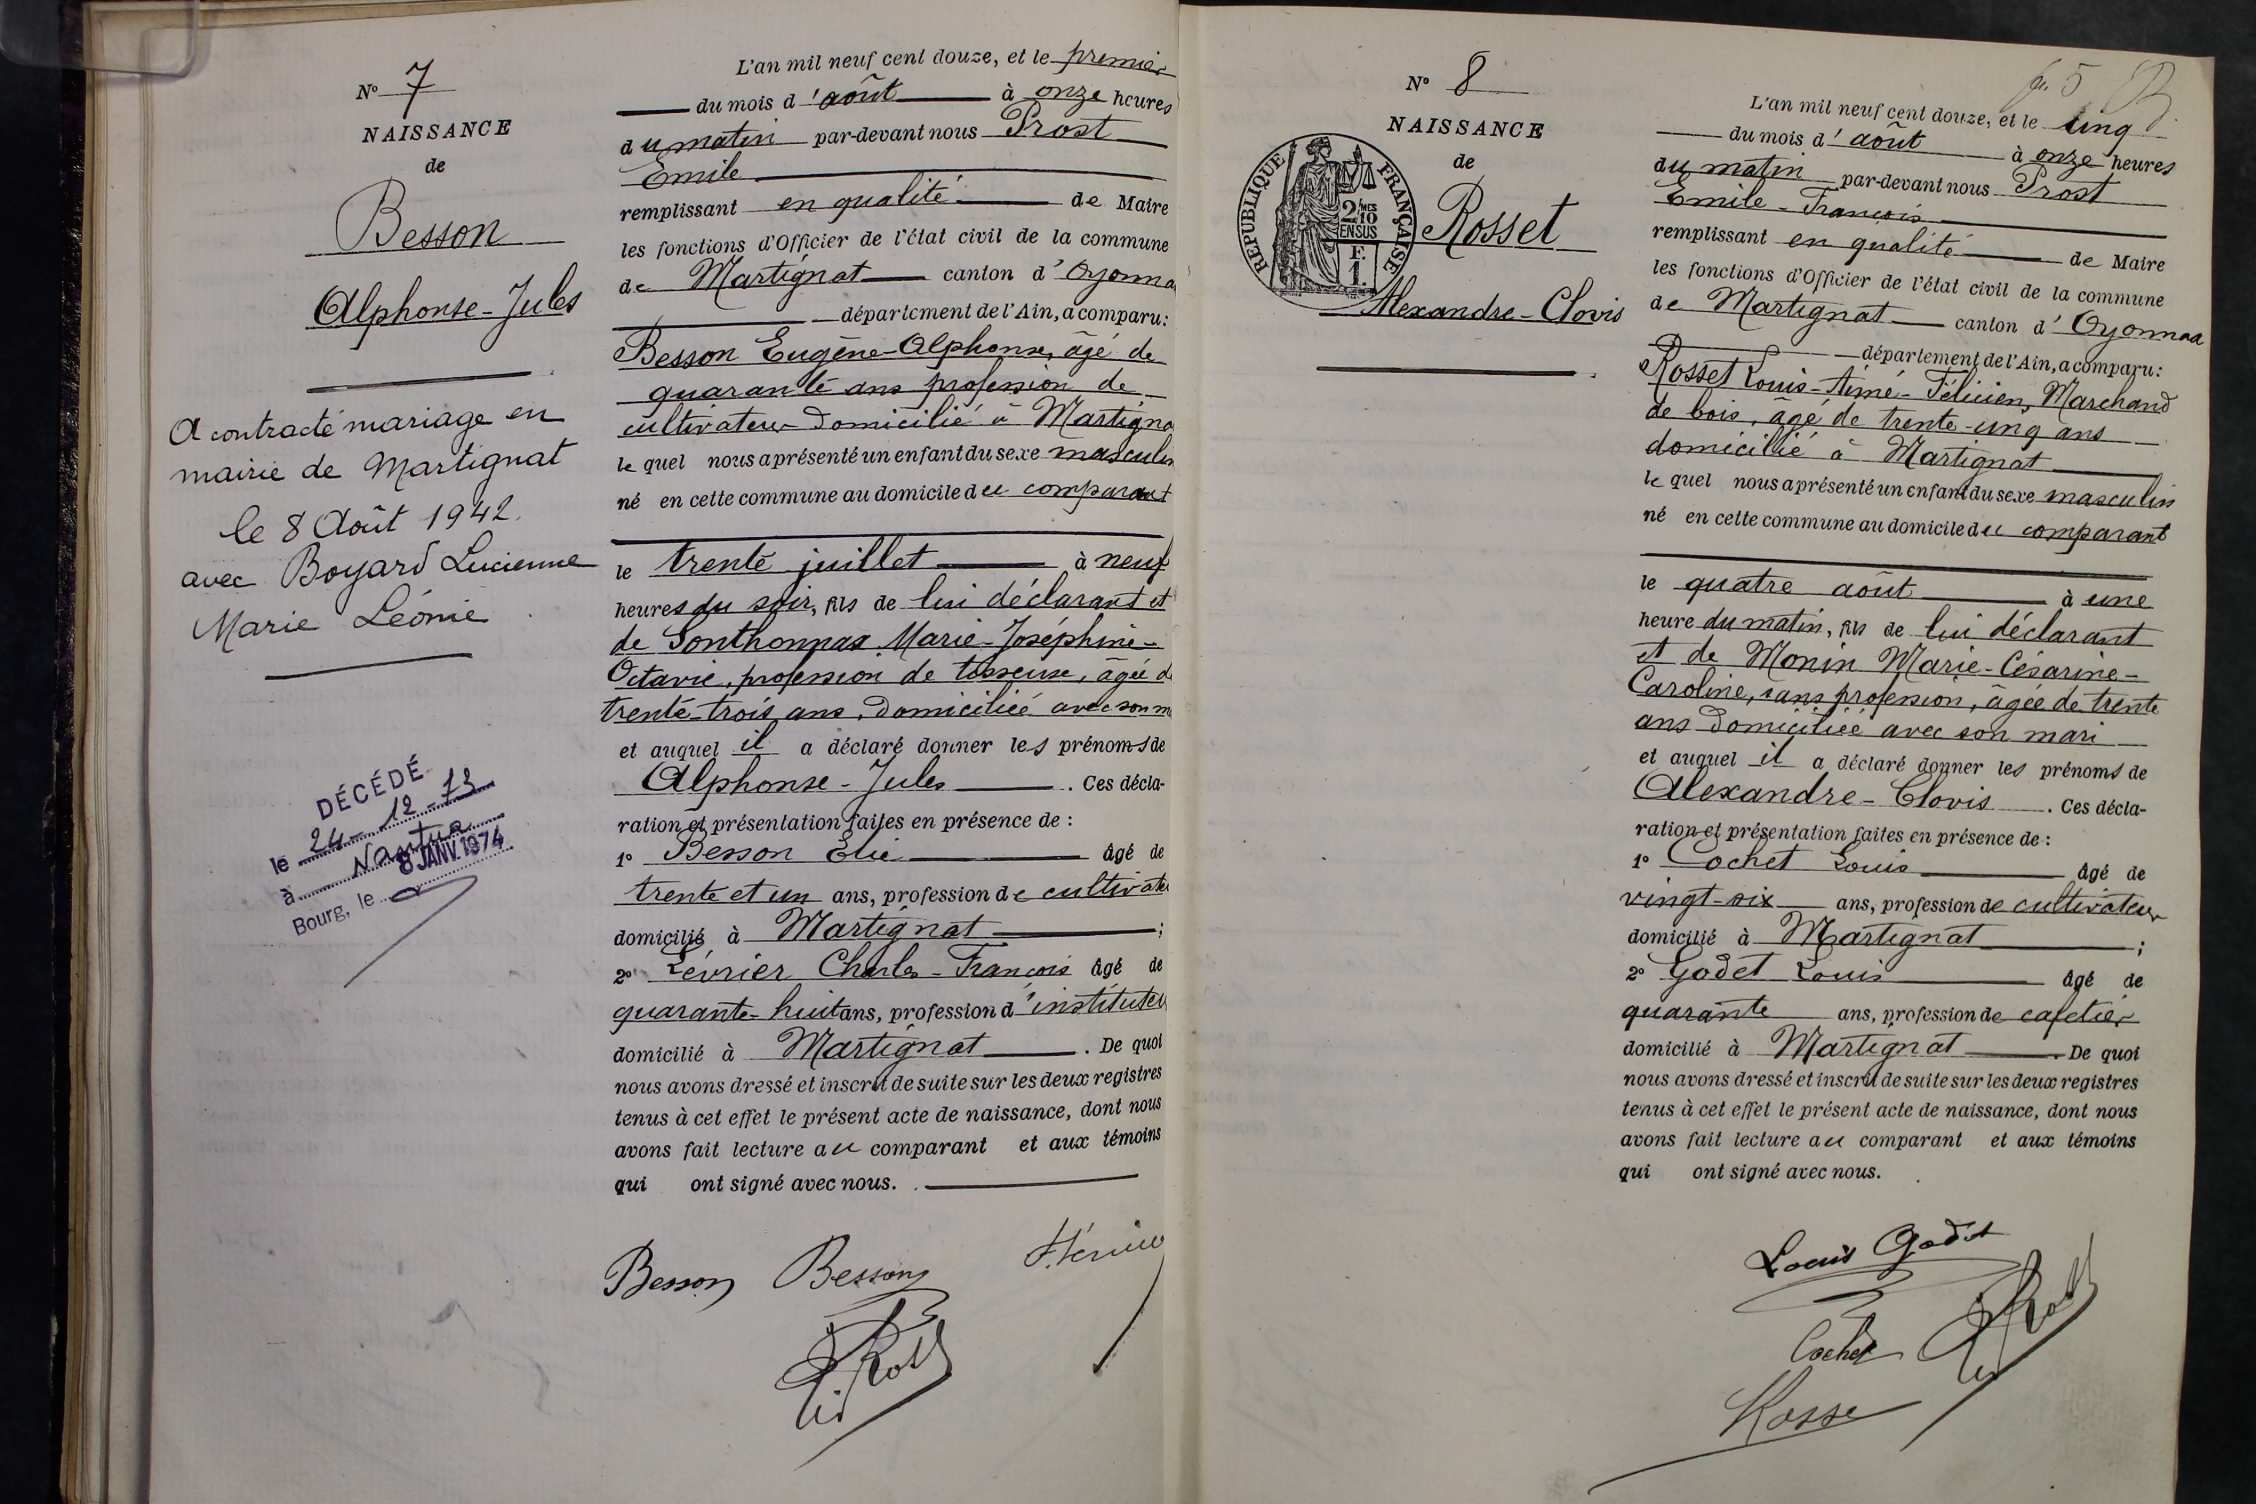 N° 7
NAISSANCE
de
Besson
Alphonse-Jules
A contracté mariage en
mairie de Martignat
le 8 Août 1942.
avec Boyard Lucienne
Marie Léonie
DÉCÉDÉ
le 24-12-73
à Nantua
Bourg, le 8 JANV. 1974
L'an mil neuf cent douze, et le premier
du mois d'août à onze heures
du matin par-devant nous Prost
Emile
remplissant en qualité de Maire
les fonctions d'Officier de l'état civil de la commune
de Martignat canton d'Oyonna
département de l'Ain, a comparu:
Besson Eugène-Alphonse, âgé de
quarante ans profession de
cultivateur domicilié à Martigna
lequel nous a présenté un enfant du sexe masculin
né en cette commune au domicile du comparant
le trente juillet à neuf
heures du soir, fils de lui déclarant et
de Sonthonnax Marie-Joséphine-
Octavie, profession de tisseuse, âgée de
trente-trois ans, domiciliée avec son m
et auquel il a déclaré donner les prénoms de
Alphonse-Jules. Ces décla-
ration et présentation faites en présence de :
1° Besson Elie âgé de
trente et un ans, profession de cultivateu
domicilié à Martignat ;
2° Lévrier Charles-François âgé de
quarante-huit ans, profession d'instituteu
domicilié à Martignat. De quoi
nous avons dressé et inscrit de suite sur les deux registres
tenus à cet effet le présent acte de naissance, dont nous
avons fait lecture au comparant et aux témoins
qui ont signé avec nous.
Besson Besson
N° 8
NAISSANCE
de
Rosset
Alexandre-Clovis
RÉPUBLIQUE FRANÇAISE
2/MES
10
EN SUS
F.
1.
fo. 5
L'an mil neuf cent douze, et le cinq
du mois d'août à onze heures
du matin par-devant nous Prost
Emile-François
remplissant en qualité de Maire
les fonctions d'Officier de l'état civil de la commune
de Martignat canton d'Oyonnax
département de l'Ain, a comparu:
Rosset Louis-Aimé-Félicien, Marchand
de bois, âgé de trente-cinq ans
domicilié à Martignat
lequel nous a présenté un enfant du sexe masculin
né en cette commune au domicile du comparant
le quatre août à une
heure du matin, fils de lui déclarant
et de Monin Marie-Césarine-
Caroline, sans profession, âgée de trente
ans domiciliée avec son mari
et auquel il a déclaré donner les prénoms de
Alexandre-Clovis. Ces décla-
ration et présentation faites en présence de :
1° Cochet Louis âgé de
vingt-six ans, profession de cultivateur
domicilié à Martignat ;
2° Godet Louis âgé de
quarante ans, profession de cafetier
domicilié à Martignat. De quoi
nous avons dressé et inscrit de suite sur les deux registres
tenus à cet effet le présent acte de naissance, dont nous
avons fait lecture au comparant et aux témoins
qui ont signé avec nous.
Louis Godet
Cochet
Rosse